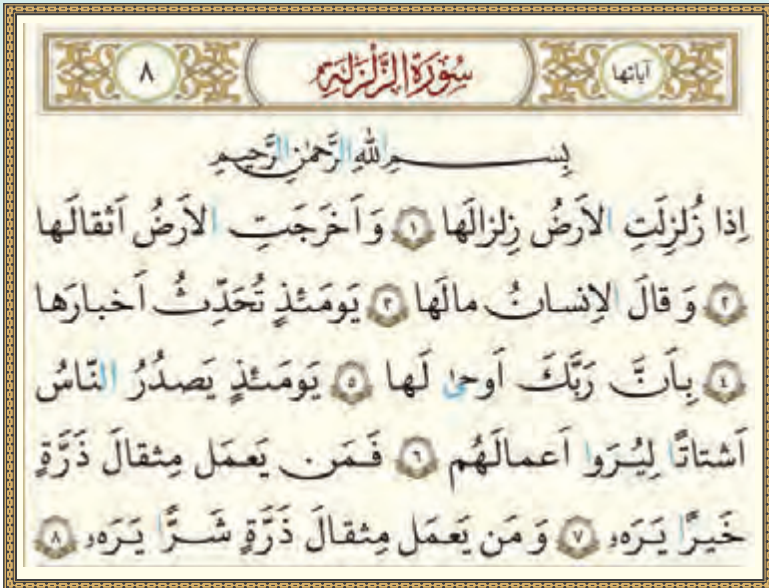 آیاتها سُوْرَةُ الزَّلْزَلَةِ ٨
بِسمِ اللّٰهِ الرَّحمٰنِ الرَّحيمِ
اِذا زُلزِلَتِ الاَرضُ زِلزالَها ١ وَ اَخرَجَتِ الاَرضُ اَثقالَها
٢ وَ قالَ الاِنسانُ مالَها ٣ يَومَئِذٍ تُحَدِّثُ اَخبارَها
٤ بِاَنَّ رَبَّكَ اَوحىٰ لَها ٥ يَومَئِذٍ يَصدُرُ النّاسُ
اَشتاتًا لِيُرَوا اَعمالَهُم ٦ فَمَن يَعمَل مِثقالَ ذَرَّةٍ
خَيرًا يَرَهۥ ٧ وَ مَن يَعمَل مِثقالَ ذَرَّةٍ شَرًّا يَرَهۥ ٨